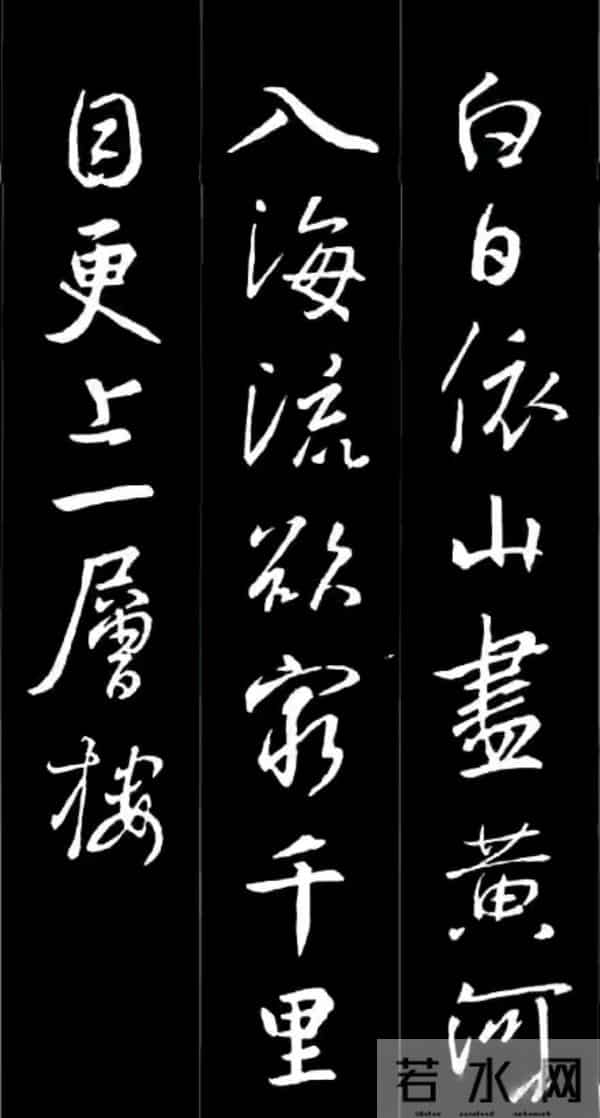 白日依山盡黄河
入海流欲窮千里
目更上一層樓
若水网